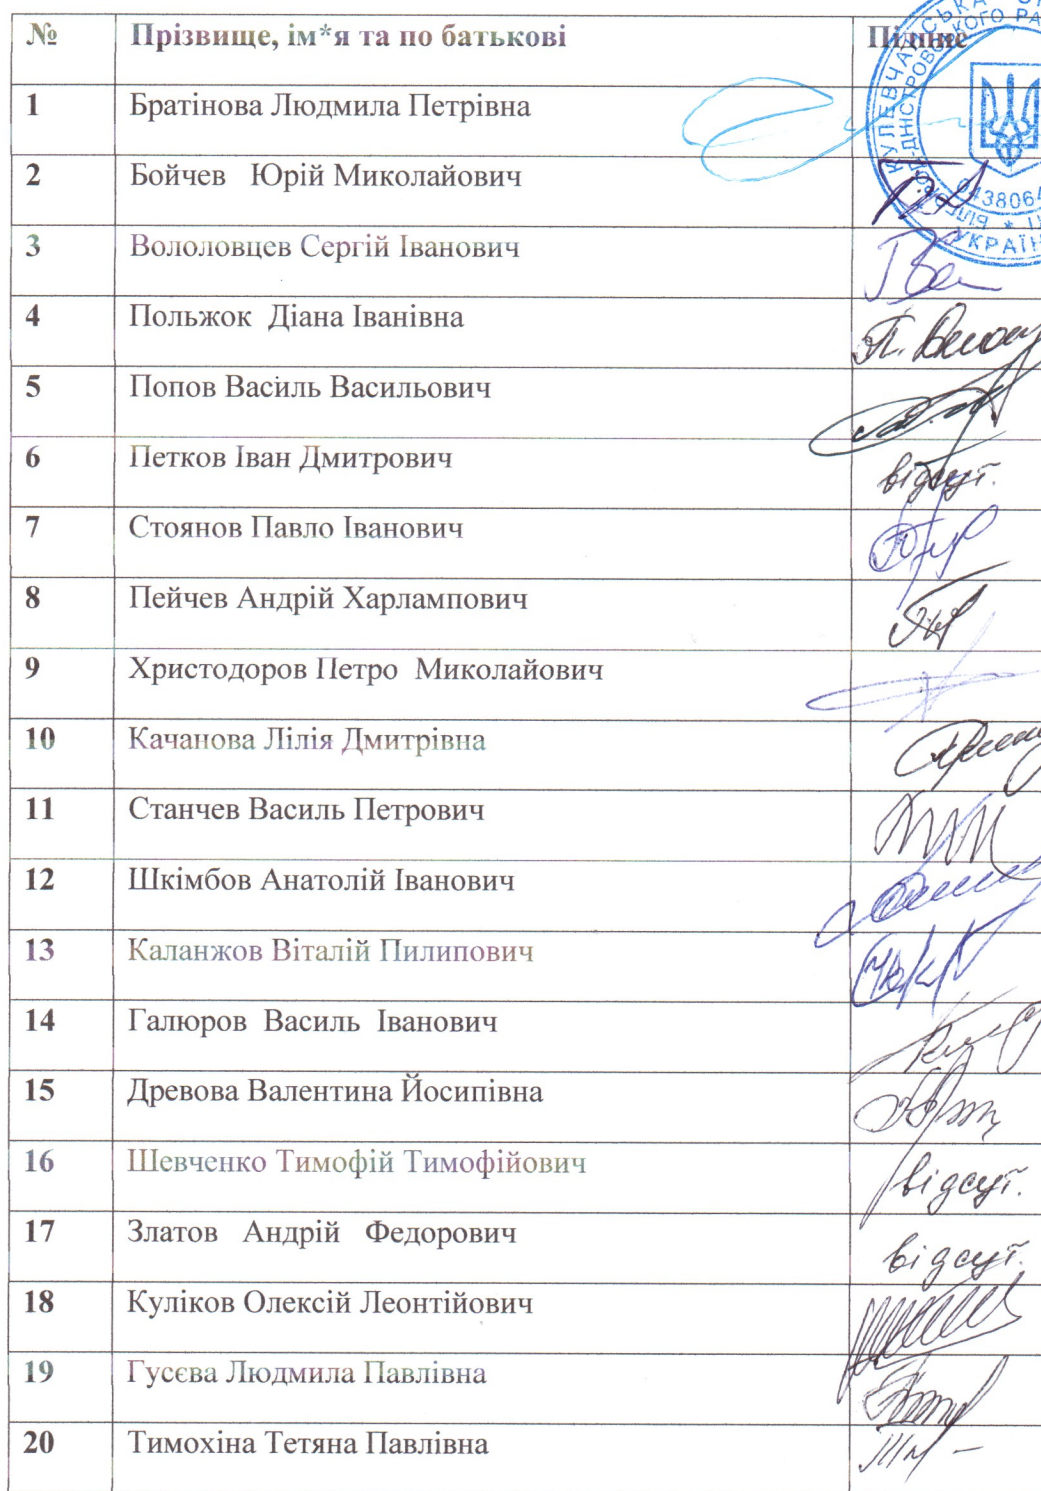 № Прізвище, ім*я та по батькові Підпис
1 Братінова Людмила Петрівна
2 Бойчев Юрій Миколайович
3 Вололовцев Сергій Іванович
4 Польжок Діана Іванівна
5 Попов Василь Васильович
6 Петков Іван Дмитрович відсут.
7 Стоянов Павло Іванович
8 Пейчев Андрій Харлампович
9 Христодоров Петро Миколайович
10 Качанова Лілія Дмитрівна
11 Станчев Василь Петрович
12 Шкімбов Анатолій Іванович
13 Каланжов Віталій Пилипович
14 Галюров Василь Іванович
15 Древова Валентина Йосипівна
16 Шевченко Тимофій Тимофійович відсут.
17 Златов Андрій Федорович відсут.
18 Куліков Олексій Леонтійович
19 Гусєва Людмила Павлівна
20 Тимохіна Тетяна Павлівна